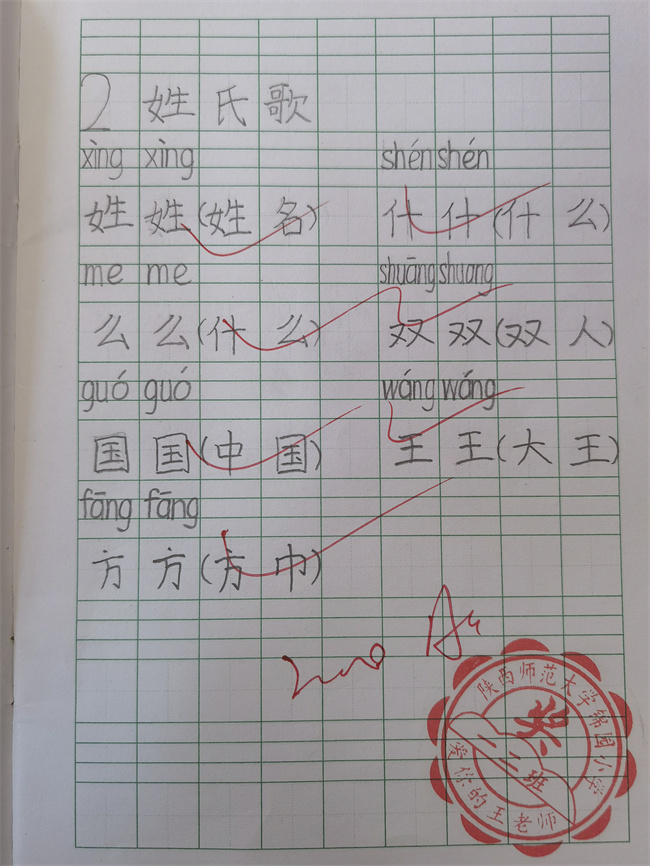 2 姓氏歌
xìng xìng shén shén
姓 姓(姓 名) 什 什(什 么)
me me shuāng shuang
么 么(什 么) 双 双(双 人)
guó guó wáng wáng
国 国(中 国) 王 王(大 王)
fāng fāng
方 方(方 巾)
陕西师范大学锦园小学
二三班
爱你的王老师